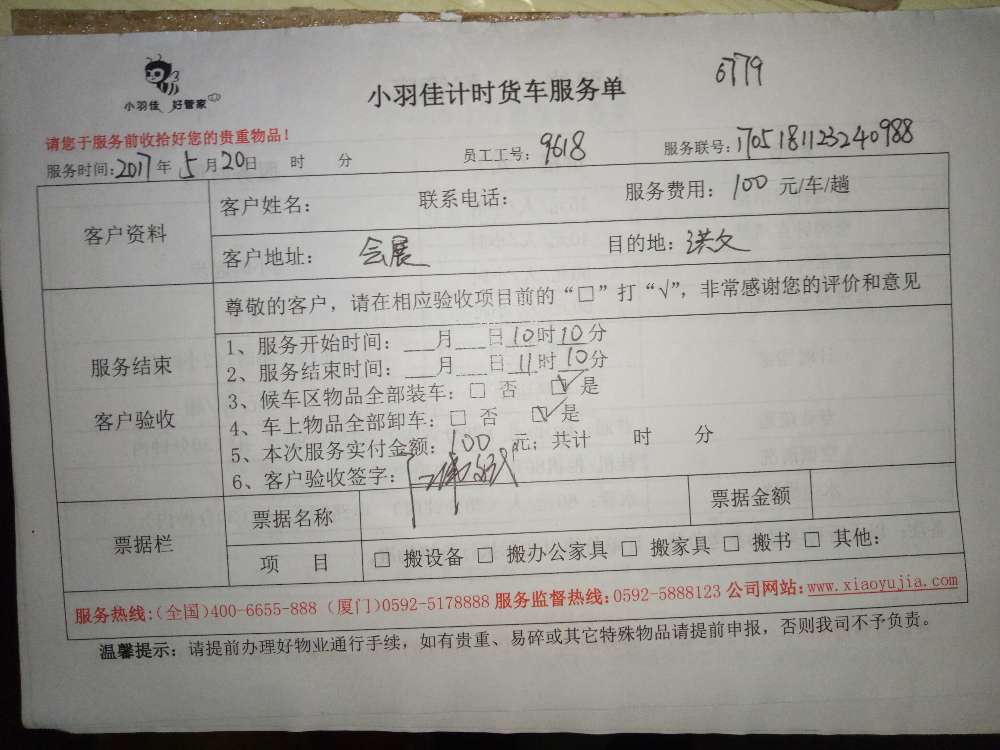 6779
小羽佳 好管家
小羽佳计时货车服务单
请您于服务前收拾好您的贵重物品！
服务时间:2017年5月20日 时 分 员工工号：9618 服务联号:1705181123240988
客户资料
客户姓名： 联系电话： 服务费用：100元/车/趟
客户地址： 会展 目的地：洪文
服务结束
客户验收
尊敬的客户，请在相应验收项目前的“□”打“√”，非常感谢您的评价和意见
1、服务开始时间：___月___日10时10分
2、服务结束时间：___月___日11时10分
3、候车区物品全部装车：□ 否 ☑ 是
4、车上物品全部卸车：□ 否 ☑ 是
5、本次服务实付金额：100元；共计 时 分
6、客户验收签字：
票据栏
票据名称 票据金额
项 目 □ 搬设备 □ 搬办公家具 □ 搬家具 □ 搬书 □ 其他：
服务热线:(全国)400-6655-888 (厦门)0592-5178888 服务监督热线:0592-5888123 公司网站:www.xiaoyujia.com
温馨提示：请提前办理好物业通行手续，如有贵重、易碎或其它特殊物品请提前申报，否则我司不予负责。